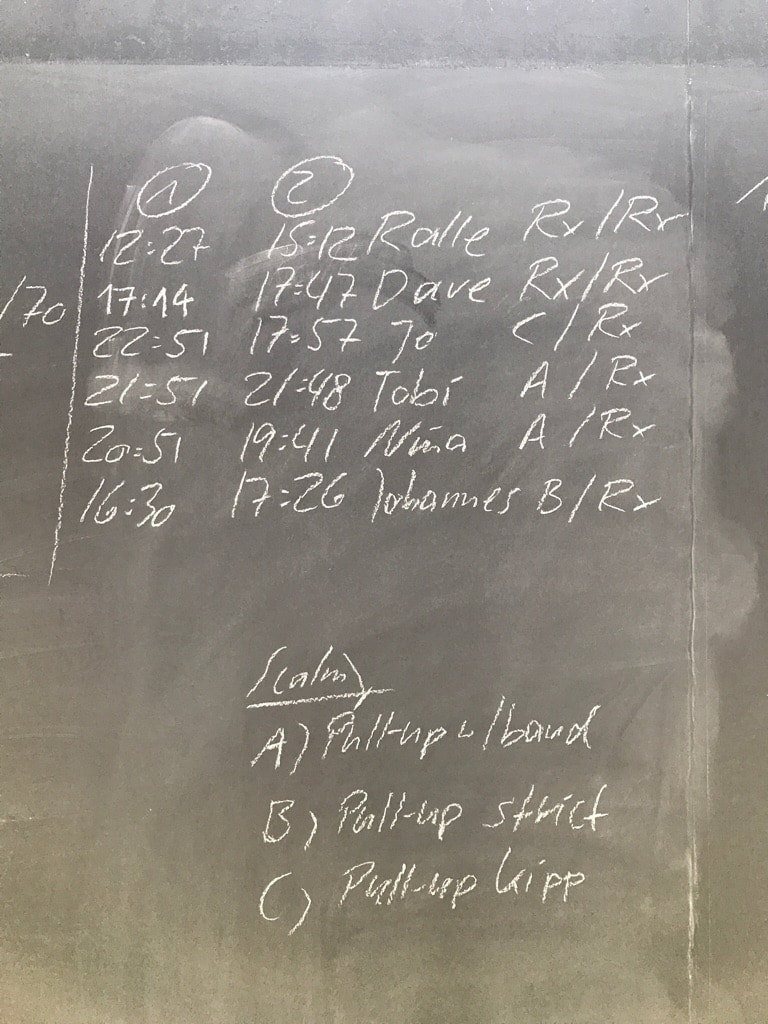 1 2
12:27 15:12 Ralle Rx/Rx
/70 17:14 17:47 Dave Rx/Rx
22:51 17:57 Jo C/Rx
21:51 21:48 Tobi A/Rx
20:51 19:41 Nina A/Rx
16:30 17:26 Johannes B/Rx
A) Pull-up w/band
B) Pull-up strict
C) Pull-up kipp